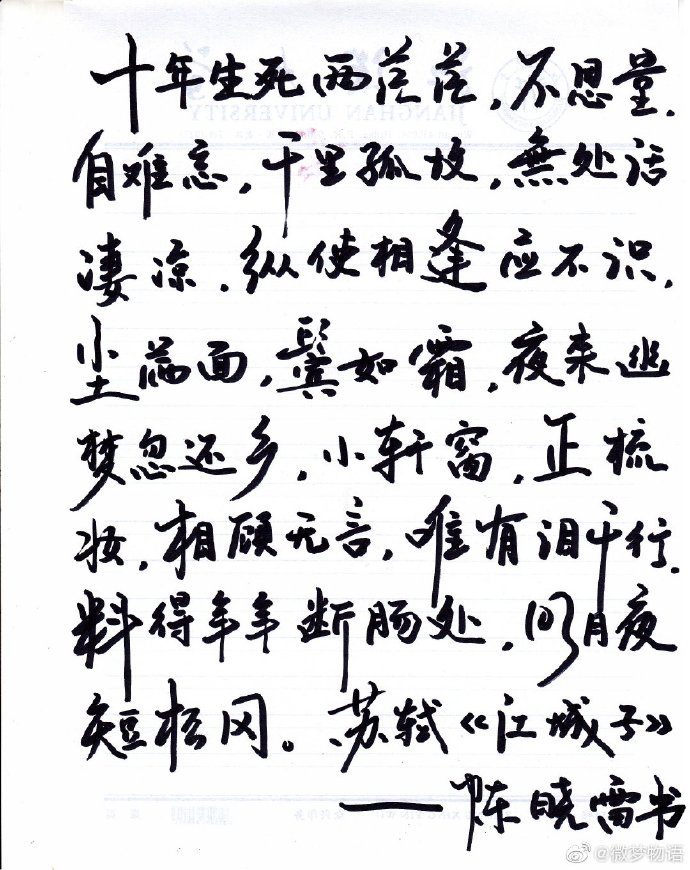 十年生死两茫茫，不思量，
自难忘，千里孤坟，無处话
凄凉，纵使相逢应不识，
尘满面，鬓如霜，夜来幽
梦忽还乡，小轩窗，正梳
妆，相顾无言，唯有泪千行，
料得年年断肠处，明月夜
短松冈。苏轼《江城子》
——陈晓雷书
JIANGHAN UNIVERSITY
@微梦物语